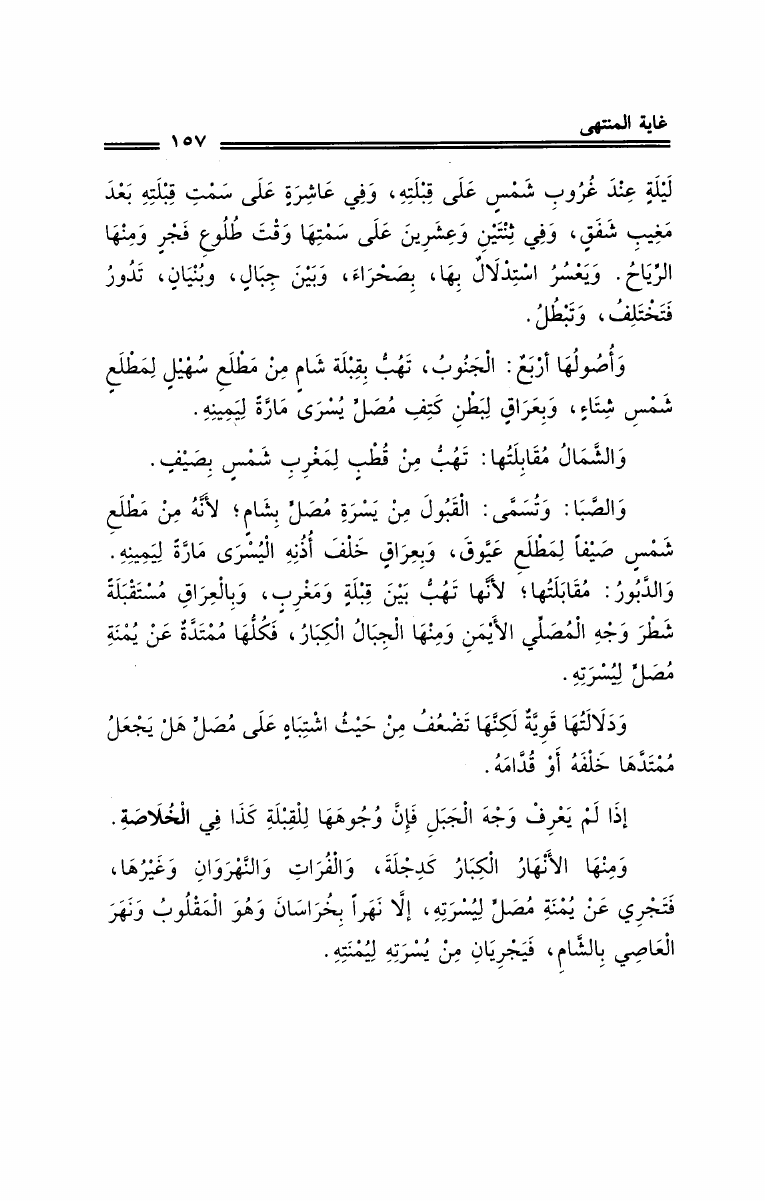 غاية المنتهى
١٥٧
لَيْلَةٍ عِنْدَ غُرُوبِ شَمْسٍ عَلَى قِبْلَتِهِ، وَفِي عَاشِرَةٍ عَلَى سَمْتِ قِبْلَتِهِ بَعْدَ
مَغِيبِ شَفَقٍ، وَفِي ثِنْتَيْنِ وَعِشْرِينَ عَلَى سَمْتِهَا وَقْتَ طُلُوعِ فَجْرٍ وَمِنْهَا
الرِّيَاحُ. وَيَعْسُرُ اسْتِدْلَالٌ بِهَا، بِصَحْرَاءَ، وَبَيْنَ جِبَالٍ، وبُنْيَانٍ، تَدُورُ
فَتَخْتَلِفُ، وَتَبْطُلُ.
وَأُصُولُهَا أرْبَعٌ: الْجَنُوبُ، تَهُبُّ بِقِبْلَة شَامٍ مِنْ مَطْلَعِ سُهْيْلٍ لِمَطْلَعٍ
شَمْسِ شِتَاءٍ، وَبِعَرَاقٍ لِبَطْنِ كَتِفِ مُصَلٍّ يُسْرَى مَارَّةً لِيَمِينِهِ.
وَالشَّمَالُ مُقَابِلَتُها: تَهُبُّ مِنْ قُطْبٍ لِمَغْرِبِ شَمْسٍ بِصَيْفٍ.
وَالصَّبَا: وَتُسَمَّى: الْقَبُولَ مِنْ يَسْرَةِ مُصَلٍّ بِشَامٍ؛ لأنَّهُ مِنْ مَطْلَعِ
شَمْسٍ صَيْفاً لِمَطْلَعِ عَيَّوقَ، وَبِعِراقٍ خَلْفَ أُذُنِهِ الْيُسْرَى مَارَّةً لِيَمِينِهِ.
وَالدَّبُورُ: مُقَابَلَتُها؛ لأنَّها تَهُبُّ بَيْنَ قِبْلَةٍ وَمَغْرِبٍ، وَبِالْعِراقِ مُسْتَقْبَلَةً
شَطْرَ وَجْهِ الْمُصَلِّي الأيْمَنِ وَمِنْهَا الْجِبَالُ الْكِبَارُ، فَكُلُّهَا مُمْتَدَّةٌ عَنْ يُمْنَةِ
مُصَلٍّ لِيُسْرَتِهِ.
وَدَلَالَتُهَا قَوِيَّةٌ لَكِنَّهَا تَضْعُفُ مِنْ حَيْثُ اشْتِبَاهٍ عَلَى مُصَلٍّ هَلْ يَجْعَلُ
مُمْتَدَّهَا خَلْفَهُ أَوْ قُدَّامَهُ.
إذَا لَمْ يَعْرِفْ وَجْهَ الْجَبَلِ فَإِنَّ وُجُوهَهَا لِلْقِبْلَةِ كَذَا فِي الْخُلَاصَةِ.
وَمِنْهَا الأَنْهَارُ الْكِبَارُ كَدِجْلَةَ، وَالْفُرَاتِ وَالنَّهْرَوَانِ وَغَيْرُهَا،
فَتَجْرِي عَنْ يُمْنَةِ مُصَلٍّ لِيُسْرَتِهِ، إلَّا نَهَراً بِخُرَاسَانَ وَهُوَ الْمَقْلُوبُ وَنَهَرَ
الْعَاصِي بِالشَّامِ، فَيَجْرِيَانِ مِنْ يُسْرَتِهِ لِيُمْنَتِهِ.